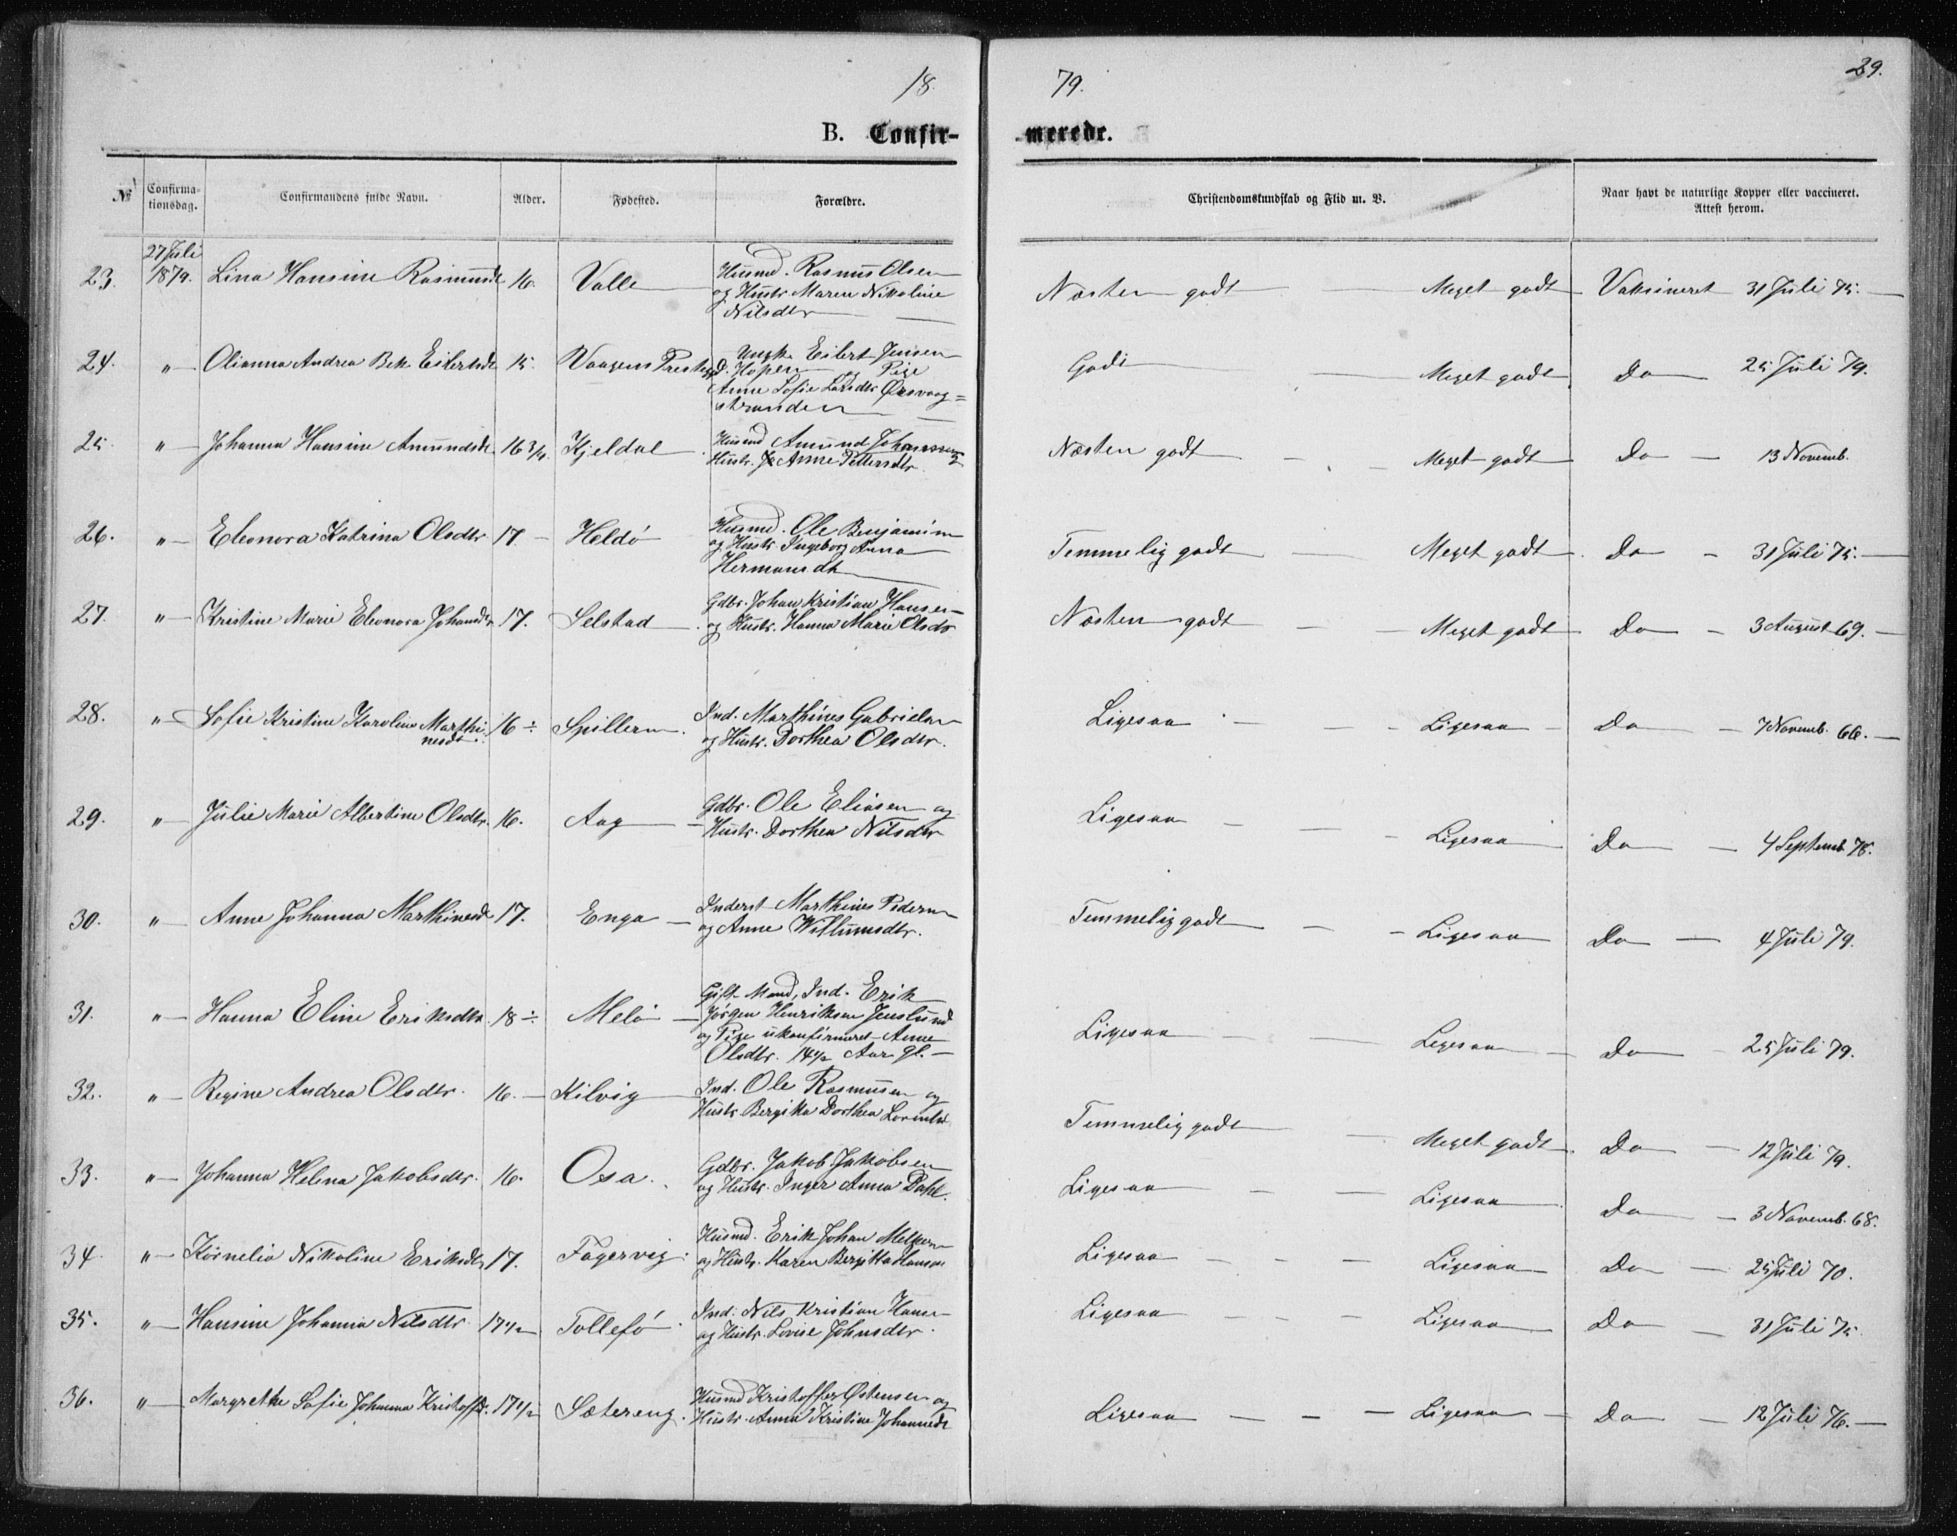 18 79. 29.
B. Confirmerede.
№ Confirmationsdag. Confirmandens fulde Navn. Alder. Fødested. Forældre. Christendomskundskab og Flid m. V. Naar havt de naturlige Kopper eller vaccineret. Attest herom.
27 Juli
23. 1879. Lina Hansine Rasmusdt 16. Valle Husmd. Rasmus Olsen
og Hustr. Maren Nikoline
Nilsdtr
Næsten godt Meget godt Vaksineret 31 Juli 75.
24. " Olianna Andrea Bek Eilertsdt 15. Vaagens Prestegjd. Ungk. Eilert Jensen
Hopen og Pige
Anne Sofie Larsdtr Ørsvaag=
stranden
Godt Meget godt Do 25 Juli 79.
25. " Johanna Hansine Amundsdt. 16 3/4 Kjeldal Husmd Amund Johansen og
Hustr. Anne Pettersdtr.
Næsten godt Meget godt Do 13 Novemb.
26. " Eleonora Katrina Olsdtr 17 Heldö Husmd. Ole Benjamin
og Hustr. Ingeborg Anna
Hermansdt
Temmelig godt Meget godt Do 31 Juli 75.
27. " Kristine Marie Eleonora Johansdtr 17. Selstad Gdbr. Johan Kristian Hansen
og Hustr. Hanna Marie Olsdtr
Næsten godt Meget godt Do 3 August 69.
28. " Sofie Kristine Karoline Marthi
nesdt. 16 ÷ Spilleren Ind. Marthines Gabrielsen
og Hustr. Dorthea Olsdtr.
Ligesaa Ligesaa Do 7 Novemb. 66.
29. " Julie Marie Albertine Olsdtr. 16. Aag Gdbr. Ole Eliasen og
Hustr. Dorthea Nilsdtr
Ligesaa Ligesaa Do 4 Septemb. 78.
30. " Anne Johanna Marthinesdt 17. Enga Inderst Marthines Pedersen
og Anne Willumsdtr.
Temmelig godt Ligesaa Do 4 Juli 79.
31. " Hanna Eline Eriksdtr. 18 ÷ Melö Gift Mand, Ind. Erik
Jörgen Henriksen Jenslund
og Pige ukonfirmeret Anne
Olsdtr. 14 1/2 Aar gl.
Ligesaa Ligesaa Do 25 Juli 79.
32. " Regine Andrea Olsdtr. 16. Kilvig Ind. Ole Rasmusen og
Hustr. Bergitta Dorthea
Temmelig godt Meget godt Do 12 Juli 79.
33. " Johanna Helena Jakobsdtr. 16. Osa. Gdbr. Jakob Jakobsen
og Hustr. Inger Anna Dahl.
Ligesaa Ligesaa Do 3 Novemb. 68.
34. " Kornelia Nikoline Eriksdtr 17. Fagervig Husmd. Erik Johan
og Hustr. Karen Bergitta Hansen
Ligesaa Ligesaa Do 25 Juli 70.
35. " Hansine Johanna Nilsdtr. 17 1/2 Tollefö Ind. Nils Kristian Hansen
og Hustr. Lovise Johnsdtr.
Ligesaa Ligesaa Do 31 Juli 75.
36. " Margrethe Sofie Johanna Kristoffd. 17 1/2 Sætereng. Husmd Kristoffer Östensen og
Hustr. Anna Kristine Johannedt
Ligesaa Ligesaa Do 12 Juli 76.